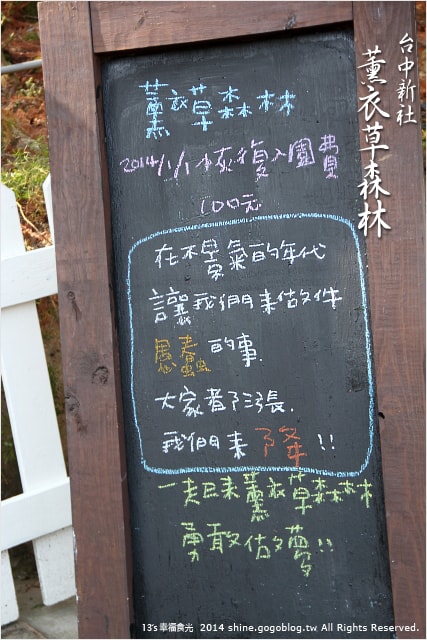 台中新社
薰衣草森林
薰衣草森林
2014/1/1恢復入園費
100元
在不景氣的年代
讓我們來做件
愚蠢的事.
大家都漲.
我們來降!!
一起來薰衣草森林
勇敢做夢!!
13's幸福食光 2014 shine.gogoblog.tw All Rights Reserved.